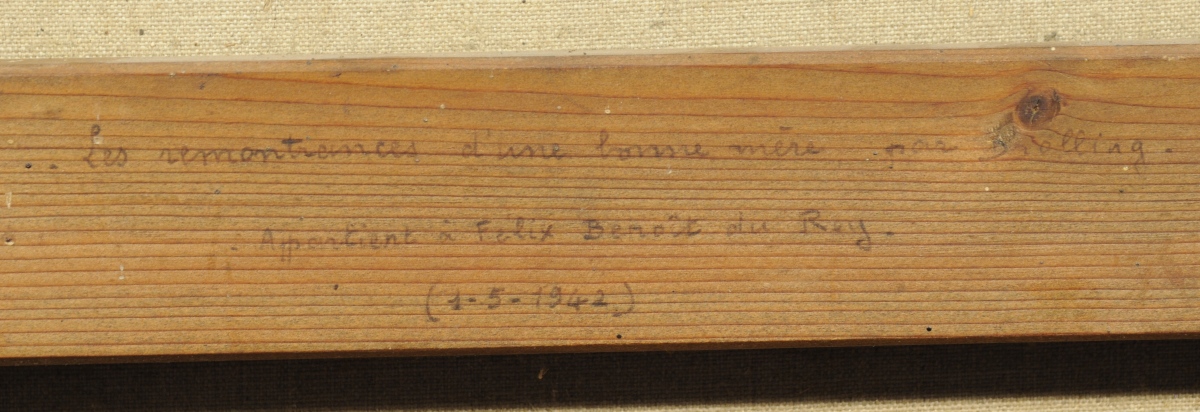 . Les remontrances d'une bonne mère par Drölling.
. Appartient à Félix Benoît du Rey.
(1-5-1942)